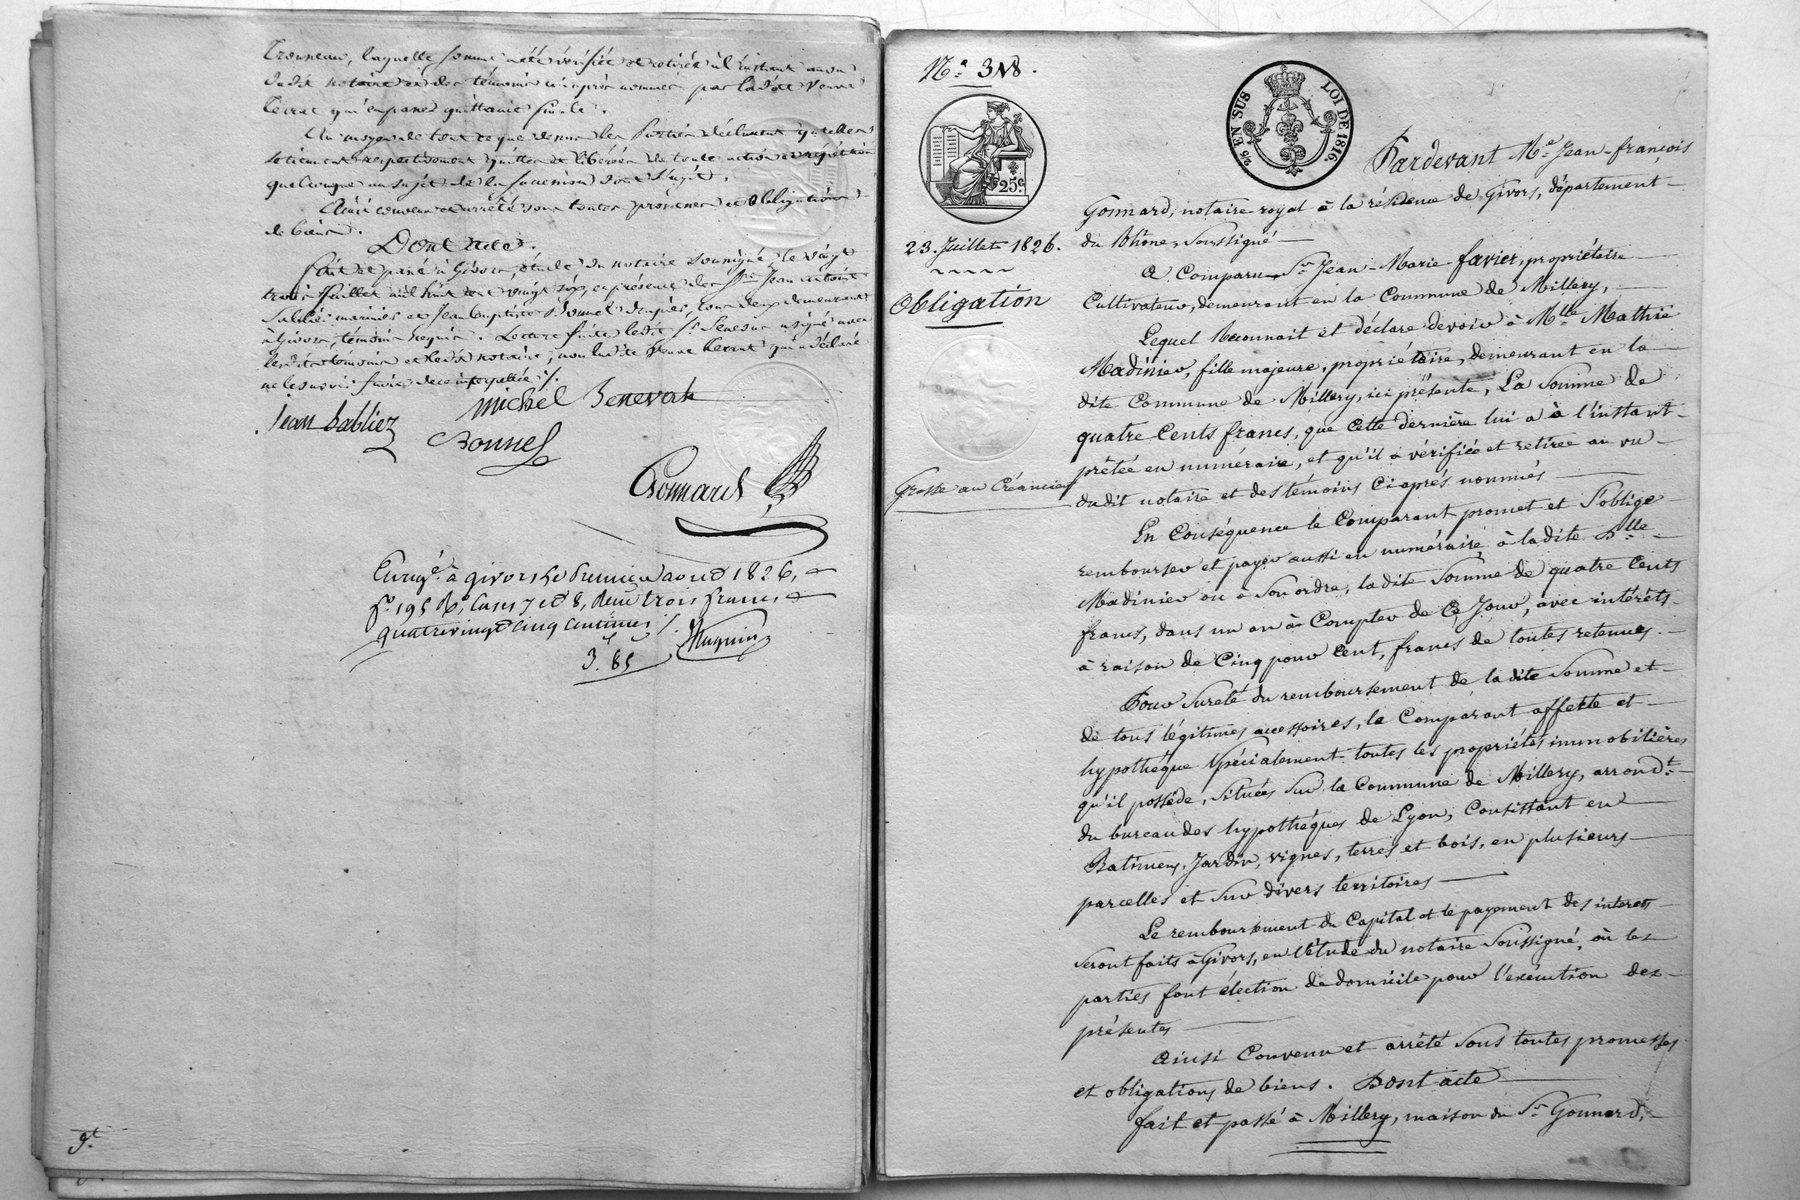 Trousseau, laquelle somme a été vérifiée et retirée à l'instant au vu
dudit notaire et des témoins ci-après nommés par ladite veuve
qui en passe quittance finale.
Au moyen de tout ce que dessus les Parties déclarent qu'elles
se tiennent respectivement quittes et libérées de toute action et répétition
quelconque au sujet de la succession dont s'agit.
Ainsi convenu et arrêté sous toutes promesses et obligations
de biens.
Dont acte.
Fait et passé à Givors, étude du notaire soussigné, le vingt
trois juillet mil huit cent vingt six, en présence des Srs Jean Antoine
mariniers et Jean Baptiste Bonnel, tous deux demeurant
à Givors, témoins requis. Lecture faite ledit Sr a signé avec
lesdits témoins et ledit notaire, non ladite veuve qui a déclaré
ne le savoir faire de ce interpellée ./.
Jean Sablier
Michel Senevat
Bonnel
Gonnard
Enregé. à givors le premier aout 1826,
fo. 195 Ro. cases 7 et 8, reçu trois francs
quatrevingt cinq centimes ./.
3. 85
9t.
No. 318.
25 EN SUS
LOI DE 1816.
25c.
23. Juillet 1826.
Obligation
Grosse au Créancier
Pardevant Me. Jean-françois
Gonnard, notaire royal à la résidence de Givors, département
du Rhône, Soussigné
a Comparu Sr. Jean-Marie favier, propriétaire
Cultivateur, demeurant en la Commune de Millery,
Lequel Reconnait et déclare devoir à Mlle. Mathie
Madinier, fille majeure, propriétaire, demeurant en la
dite Commune de Millery, ici présente, La Somme de
quatre Cents francs, que cette dernière lui a à l'instant
prêtée en numéraire, et qu'il a vérifiée et retirée au vu
dudit notaire et des témoins Ci après nommés
En Conséquence le Comparant promet et S'oblige
rembourser et payer aussi en numéraire à ladite Dlle.
Madinier ou à Son ordre, la dite Somme de quatre Cents
francs, dans un an à Compter de Ce Jour, avec intérêts
à raison de Cinq pour Cent, francs de toutes retenues.
Pour Sureté du remboursement de la dite Somme et
de tous légitimes accessoires, le Comparant affecte et
hypothèque Spécialement toutes les propriétés immobilières
qu'il possède, Situées Sur la Commune de Millery, arrondt.
du bureau des hypothèques de Lyon, Consistant en
Batimens, Jardin, vignes, terres et bois, en plusieurs
parcelles et Sur divers territoires
Le remboursement du Capital et le payement des interets
Seront faits à Givors, en l'étude du notaire Soussigné, où les
parties font élection de domicile pour l'exécution des
présentes
Ainsi Convenu et arrêté Sous toutes promesses
et obligations de biens. Dont acte
fait et passé à Millery, maison du Sr. Gonnard,